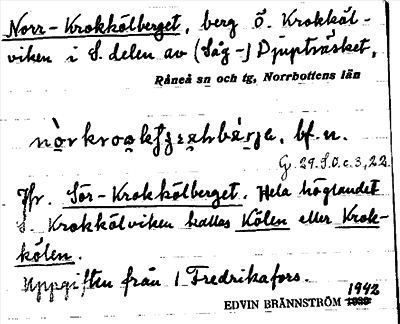 Norr-Krokkölberget, berg Ö. Krokköl-
viken i S. delen av (Såg-) Djupträsket,
Råneå sn och tg, Norrbottens län
bf. n.
G 29. S.O. c. 3, 22
Jfr. Sör-Krokkölberget. Hela höglandet
S. Krokkölviken kallas Kölen eller Krok-
kölen.
Uppgiften från 1 Fredrikafors.
1942
EDVIN BRÄNNSTRÖM 1939